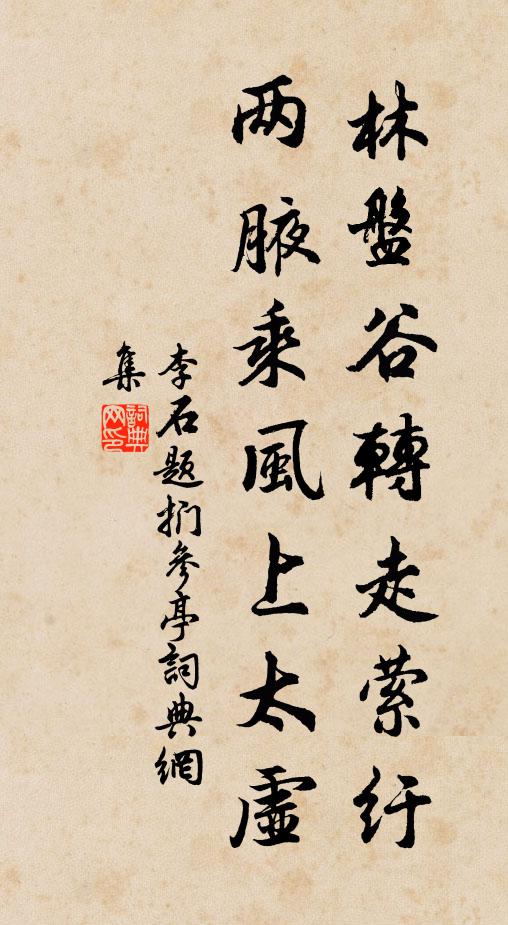 林盤谷轉走萦纡
两腋乘風上太虛
李石题捫參亭詞典網
集
詞典网印